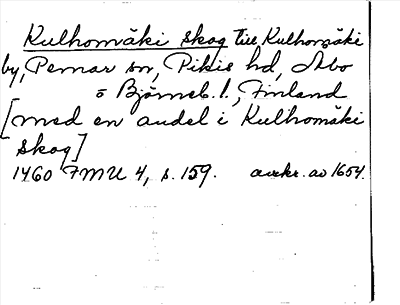 Kulhomäki skog till Kulhomäki
by, Pemar sn, Pikis hd, Åbo
o Björneb. l., Finland
[med en andel i Kulhomäki
skog]
1460 FMU 4, s. 159. avskr. av 1654.